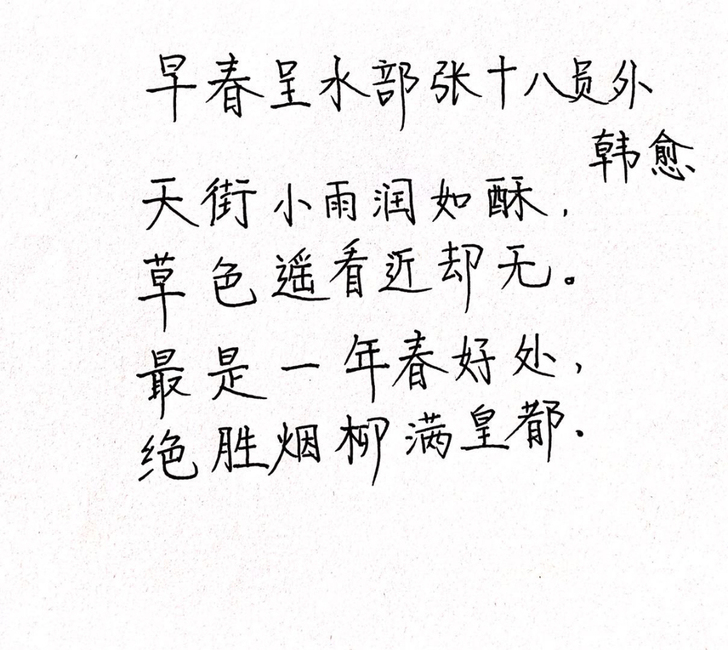 早春呈水部张十八员外
韩愈
天街小雨润如酥,
草色遥看近却无。
最是一年春好处,
绝胜烟柳满皇都.